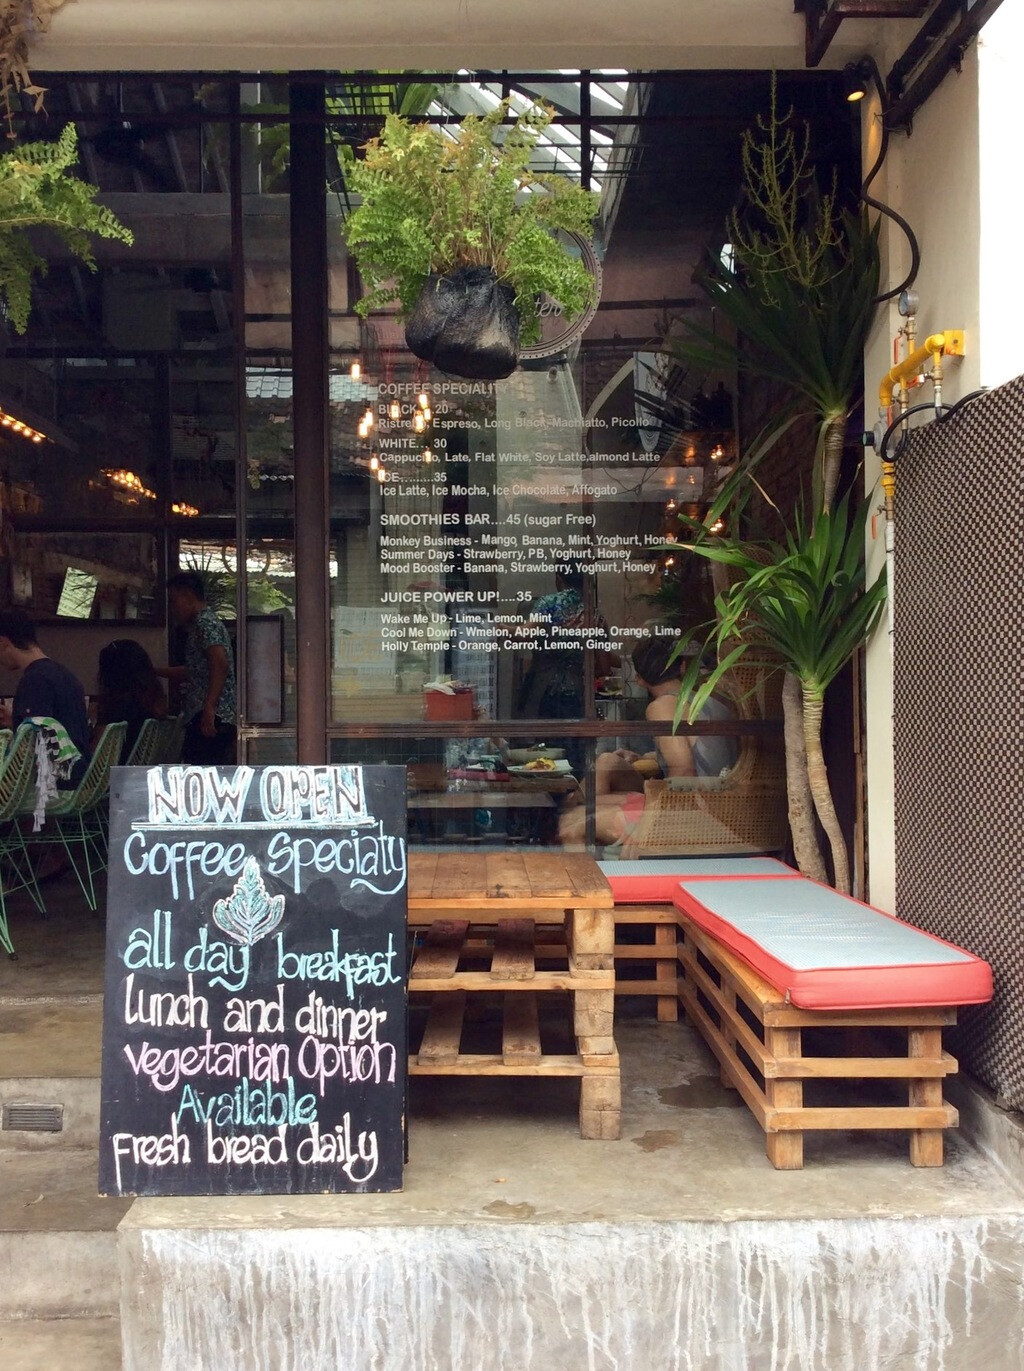 COFFEE SPECIALITY
BLACK.... 20
Ristretto, Espreso, Long Black, Machiatto, Picollo
WHITE... 30
Cappucino, Late, Flat White, Soy Latte,almond Latte
ICE........35
Ice Latte, Ice Mocha, Ice Chocolate, Affogato
SMOOTHIES BAR....45 (sugar Free)
Monkey Business - Mango, Banana, Mint, Yoghurt, Honey
Summer Days - Strawberry, PB, Yoghurt, Honey
Mood Booster - Banana, Strawberry, Yoghurt, Honey
JUICE POWER UP!....35
Wake Me Up - Lime, Lemon, Mint
Cool Me Down - Wmelon, Apple, Pineapple, Orange, Lime
Holly Temple - Orange, Carrot, Lemon, Ginger
NOW OPEN
Coffee Specialty
all day breakfast
lunch and dinner
vegetarian Option
Available
Fresh bread daily